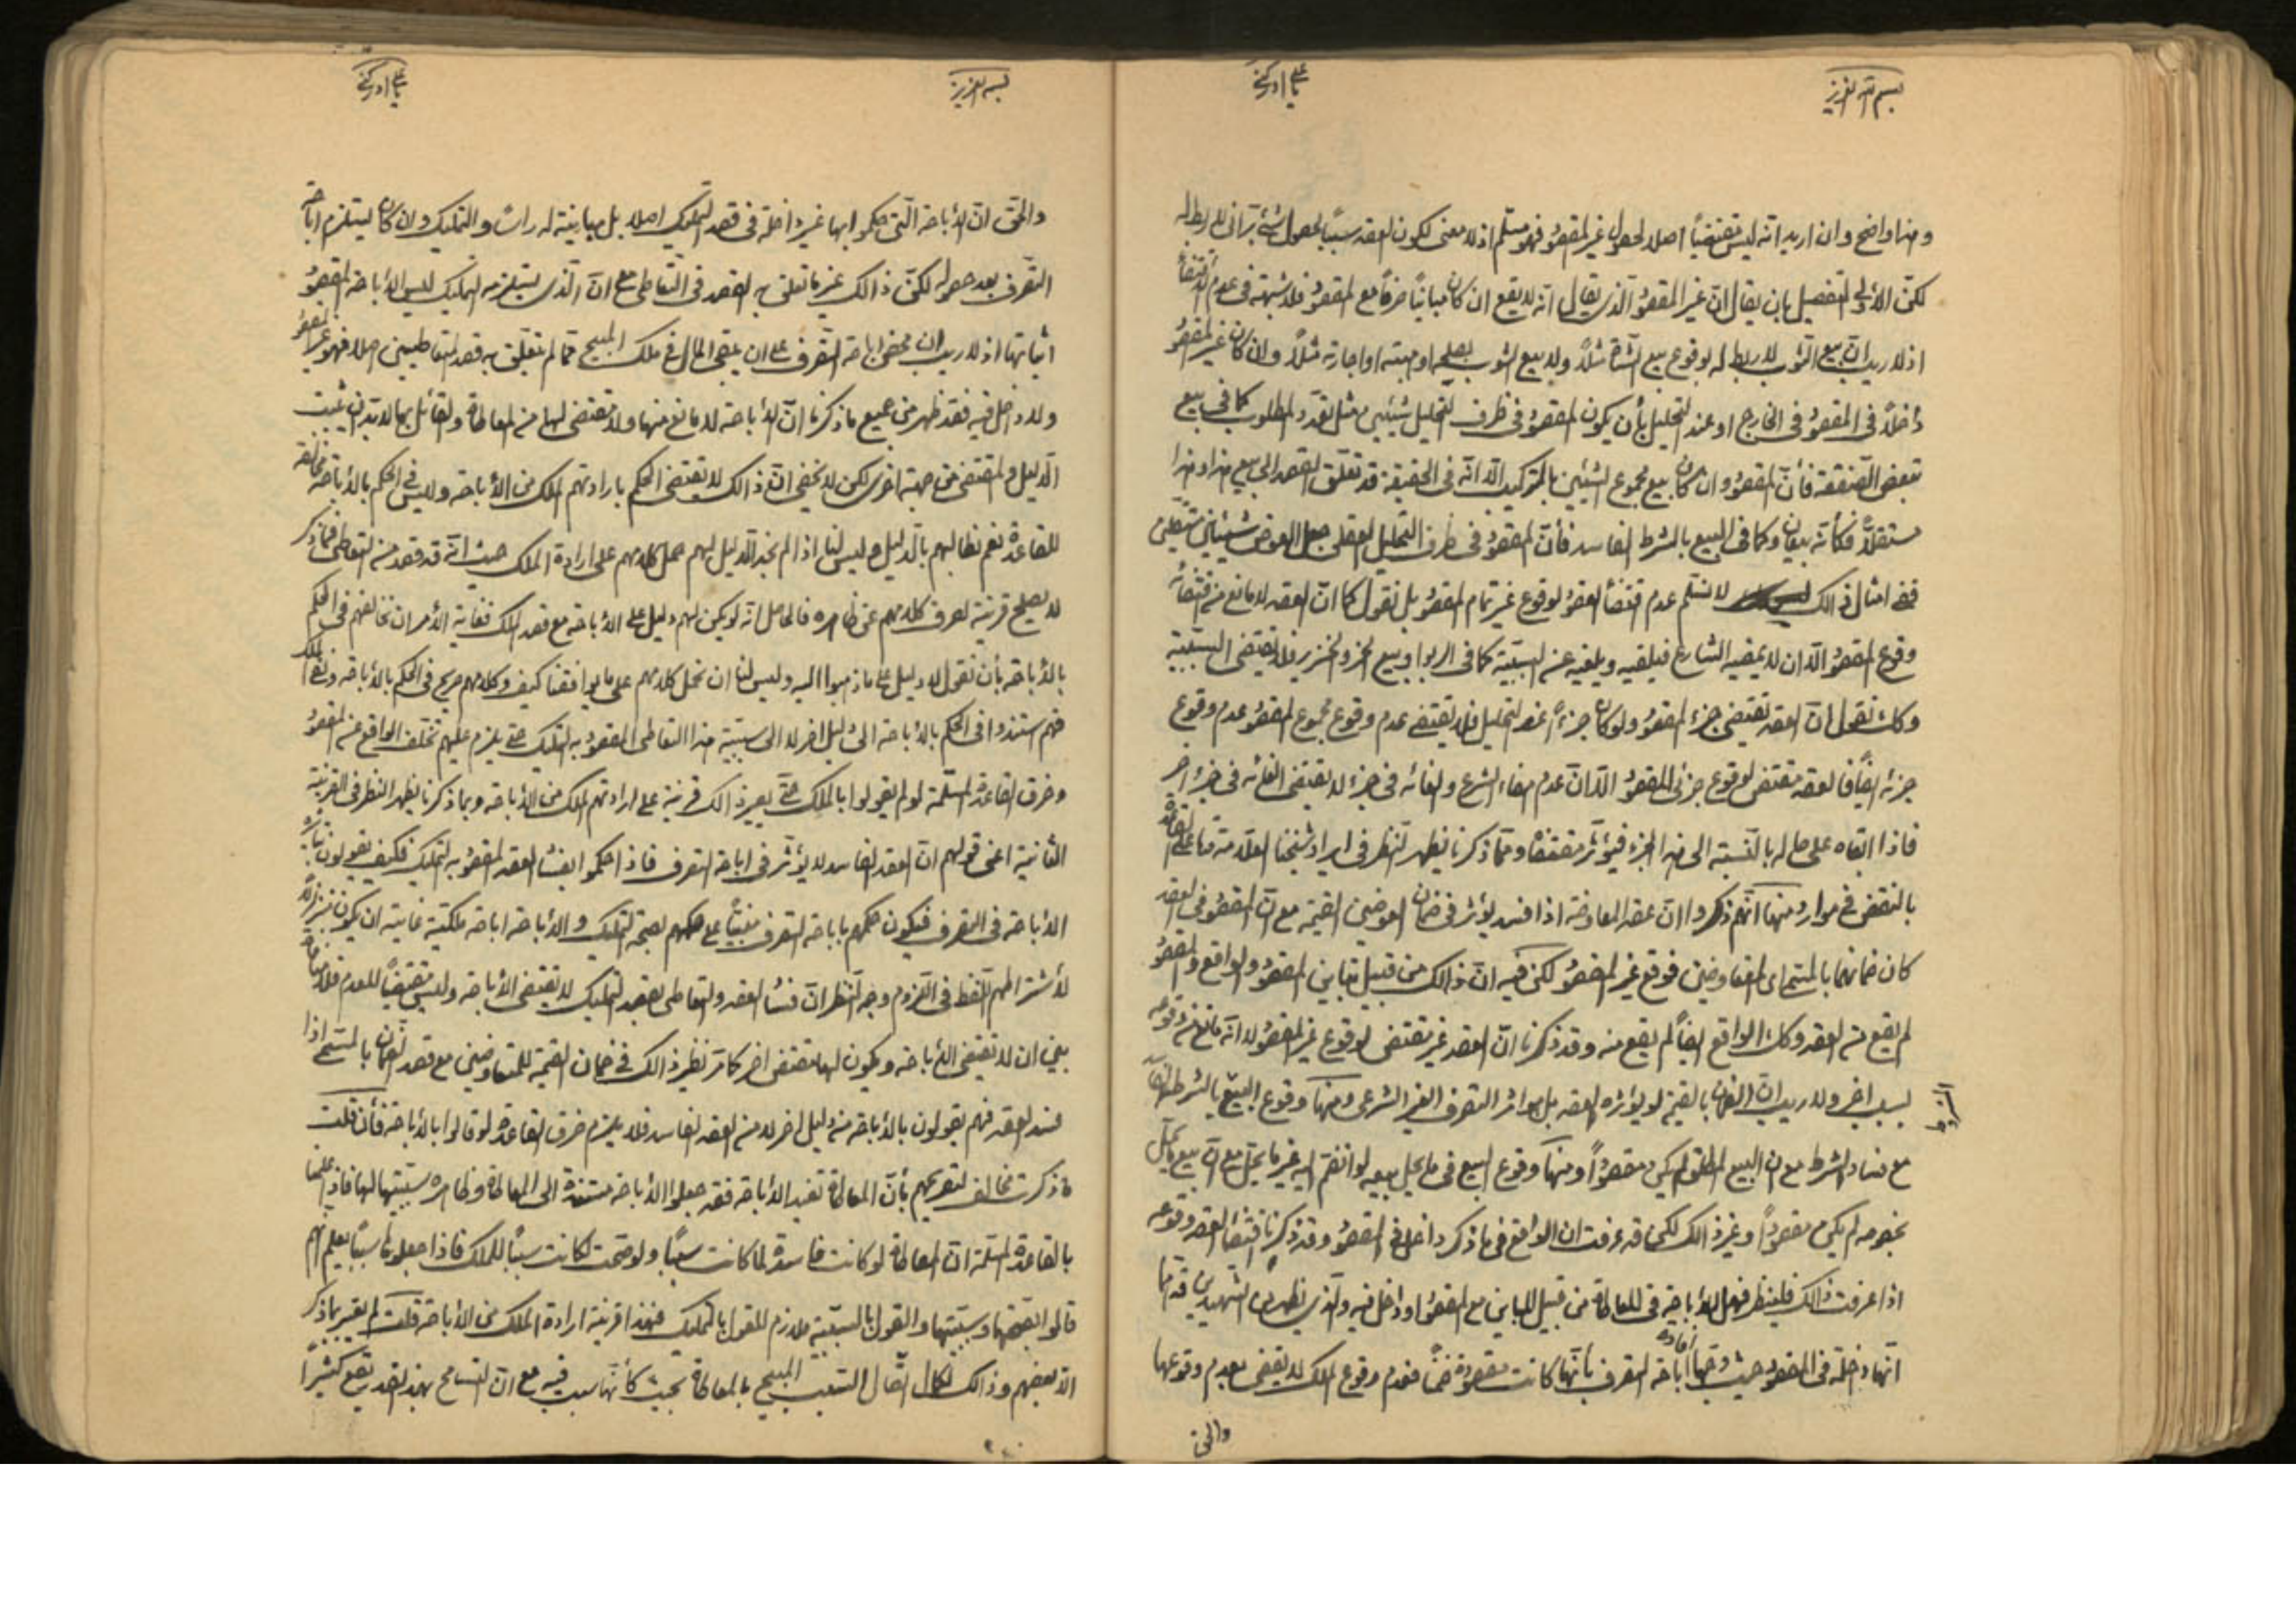 بسم الله العزيز
يا علي ادركني
وهذا واضح وان اريد انه ليس مقتضياً اصلا لحصول غير المقصود فهو مسلّم اذ لا معنى لكون العقد سبباً لحصول شئ براني لا ربط له
لكن الأولى التفصيل بان يقال انّ غير المقصود الذي يقال انه لا يقع ان كان مبايناً صرفاً مع المقصود فلا شبهة في عدم اقتضائه
اذ لا ريب انّ بيع الثوب لا ربط له بوقوع بيع الشاة مثلاً ولا بيع الثوب بصلحه او هبته او اجارته مثلاً وان كان غير المقصود
داخلاً في المقصود في الخارج او عند التحليل بأن يكون المقصود في ظرف التحليل شيئين مثل تعدد المطلوب كما في بيع
تبعض الصفقة فأنّ المقصود وان كان بيع مجموع الشيئين بالتركيب الّا انه في الحقيقة قد تعلّق القصد الى بيع هذا وهذا
مستقلاً فكأنه بيعان وكما في البيع بالشرط الفاسد فأنّ المقصود في ظرف التحليل العقلي جعل العوض شيئان مستقلين
ففي امثال ذالك لا نسلّم عدم اقتضاء العقود لوقوع غير تمام المقصود بل نقول كما انّ العقد لا مانع من اقتضائه
وقوع المقصود الّا ان لا يمضيه الشارع فيلقيه ويلغيه عن السببيّة كما في الربوا وبيع الخمر والخنزير فلا يقتضي السببية
وكك نقول انّ العقد يقتضي جزء المقصود ولو كان جزءاً عند التحليل فلا يقتضي عدم وقوع مجموع المقصود عدم وقوع
جزئه ايضاً فالعقد مقتضي لوقوع جزئي المقصود الّا انّ عدم امضاء الشرع والغائه في جزء لا يقتضي الغائه في جزء اخر
فاذا ابقاه على حاله بالنسبة الى هذا الجزء فيؤثر مقتضاه وممّا ذكرنا يظهر النظر في ايراد شيخنا العلامة على القاعدة
بالنقض في موارد منها انهم ذكروا انّ عقد المعاوضة اذا فسد يؤثر في ضمان العوضين القيمة مع انّ المقصود في العقد
كان ضمانهما بالمسمى اي المتعاوضين فوقع غير المقصود لكن فيه انّ ذالك من قبيل تباين المقصود والواقع والمقصود
لم يقع من العقد وكك الواقع ايضاً لم يقع منه وقد ذكرنا انّ العقد غير مقتضي لوقوع غير المقصود لا انه مانع من وقوعه
بسبب اخر ولا ريب انّ الضمان بالقيمة لا يؤثره العقد بل هو اثر التصرف الغير الشرعي ومنها وقوع البيع بالشرط
مع فساد الشرط مع ان البيع المطلق لم يكن مقصوداً ومنها وقوع البيع في ما يحل بيعه لو انضم اليه غير ما يحل مع انّ بيع ما يحل
بخصوصه لم يكن مقصوداً وغير ذالك لكن قد عرفت ان الواقع في ما ذكر داخل في المقصود وقد ذكرنا اقتضاء العقد وقوعه
اذا عرفت ذالك فلينظر فهل الأباحة في المعاطاة من قبيل المباين مع المقصود او داخل فيه والذي يظهر من الشهيدين
انّها داخلة في المقصود حيث وجّها افادة اباحة التصرف بأنها كانت مقصودة ضمناً فعدم وقوع الملك لا يقضي بعدم وقوعها
والحق
بسمه العزيز
يا علي ادركني
والحقّ انّ الأباحة الّتي حكموا بها غير داخلة في قصد التمليك اصلا بل مباينة له رأساً والتمليك وان كان يستلزم اباحة
التصرف بعد حصوله لكنّ ذالك غير ما تعلق به القصد في التعاطي مع انّ الذي يستلزمه التمليك ليس الأباحة المقصود
اثباتها اذ لا ريب ان محض اباحة التصرف على ان يبقى المال في ملك المبيح ممّا لم يتعلّق به قصد المتعاطيين اصلا فهو غير المقصود
ولا داخل فيه فقد ظهر من جميع ما ذكرنا انّ الأباحة لا مانع منها ولا مقتضي لها من المعاطاة والقائل بها لا بد ان يثبت
الدليل والمقتضي من جهة اخرى لكن لا يخفى انّ ذالك لا يقتضي الحكم بارادتهم الملك من الأباحة وليس في الحكم بالأباحة مخالفة
للقاعدة نعم نطالبهم بالدليل وليس لنا اذا لم نجد الدليل لهم حمل كلامهم على ارادة الملك حيث انّه قد قصد من التعاطي فما ذكر
لا يصلح قرينة لصرف كلامهم عن ظاهره فالحاصل انّه لو يكن لهم دليل على الأباحة مع قصد الملك فغاية الأمر ان نخالفهم في الحكم
بالأباحة بأن نقول لا دليل على ما ذهبوا اليه وليس لنا ان نحمل كلامهم على ما يوافقنا كيف وكلامهم صريح في الحكم بالأباحة ونفي الملك
فهم استندوا في الحكم بالأباحة الى دليل اخر لا الى سببية هذا التعاطي المقصود به التمليك حتى يلزم عليهم تخلف الواقع عن المقصود
وخرق القاعدة المسلّمة لو لم يقولوا بالملك حتى يصير ذالك قرينة على ارادتهم الملك من الأباحة وبما ذكرنا يظهر النظر في القرينة
الثانية اعني قولهم انّ العقد الفاسد لا يؤثر في اباحة التصرف فاذا حكموا بفساد العقد المقصود به التمليك فكيف يقولون بتأثيره
الأباحة في التصرف فيكون حكمهم باباحة التصرف مبنياً على حكمهم بصحة التمليك والأباحة اباحة ملكيّة غايته ان يكون متزلزلاً
لأشتراطهم اللفظ في اللزوم وجه النظر انّ فساد العقد والتعاطي بقصد التمليك لا يقتضي الأباحة وليس مقتضياً للعدم فلا منافاة
بين ان لا يقتضي الأباحة ويكون لها مقتضي اخر كما مرّ نظير ذالك في ضمان القيمة للمتعاوضين مع قصد الضمان بالمسمى اذا
فسد العقد فهم يقولون بالأباحة من دليل اخر لا من العقد الفاسد فلا يلزم خرق القاعدة لو قالوا بالأباحة فأن قلت
ما ذكرت مخالف لتصريحهم بأنّ المعاطاة تفيد الأباحة فقد جعلوا الأباحة مستندة الى المعاطاة وظاهره سببيتها لها فاذا علمنا
بالقاعدة المسلمة انّ المعاطاة لو كانت فاسدة لما كانت سبباً ولو صحت لكانت سبباً للملك فاذا جعلوها سبباً يعلم انهم
قالوا بصحتها وسببيتها والقول بالسببيّة ملازم للقول بالتمليك فهذا قرينة ارادة الملك من الأباحة قلت لم يعبر بما ذكر
الّا بعضهم وذالك لكمال اتصال التسبب المبيح بالمعاطاة بحيث كأنها سبب فيه مع انّ التسامح بهذا القدر يقع كثيراً